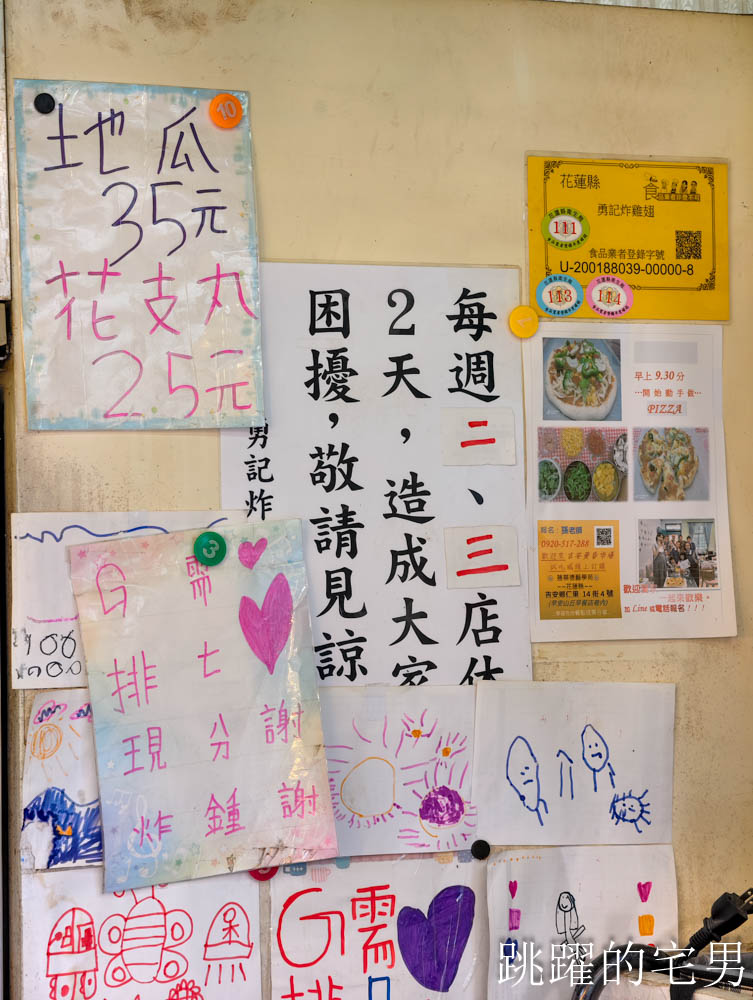 土地瓜
35元
花支丸
25元
花蓮縣
勇記炸雞翅
111
食品業者登錄字號
U-200188039-00000-8
113
114
每週二、三店休
2天，造成大家
困擾，敬請見諒
勇記炸
早上 9.30分
開始動手做
PIZZA
報名：
0920-517-288
吉安鄉仁里 14街4號
歡迎
一起來歡樂。
加 Line 或電話報名！！！
G排現炸
需七分鐘
謝謝
G排
需
跳躍的宅男